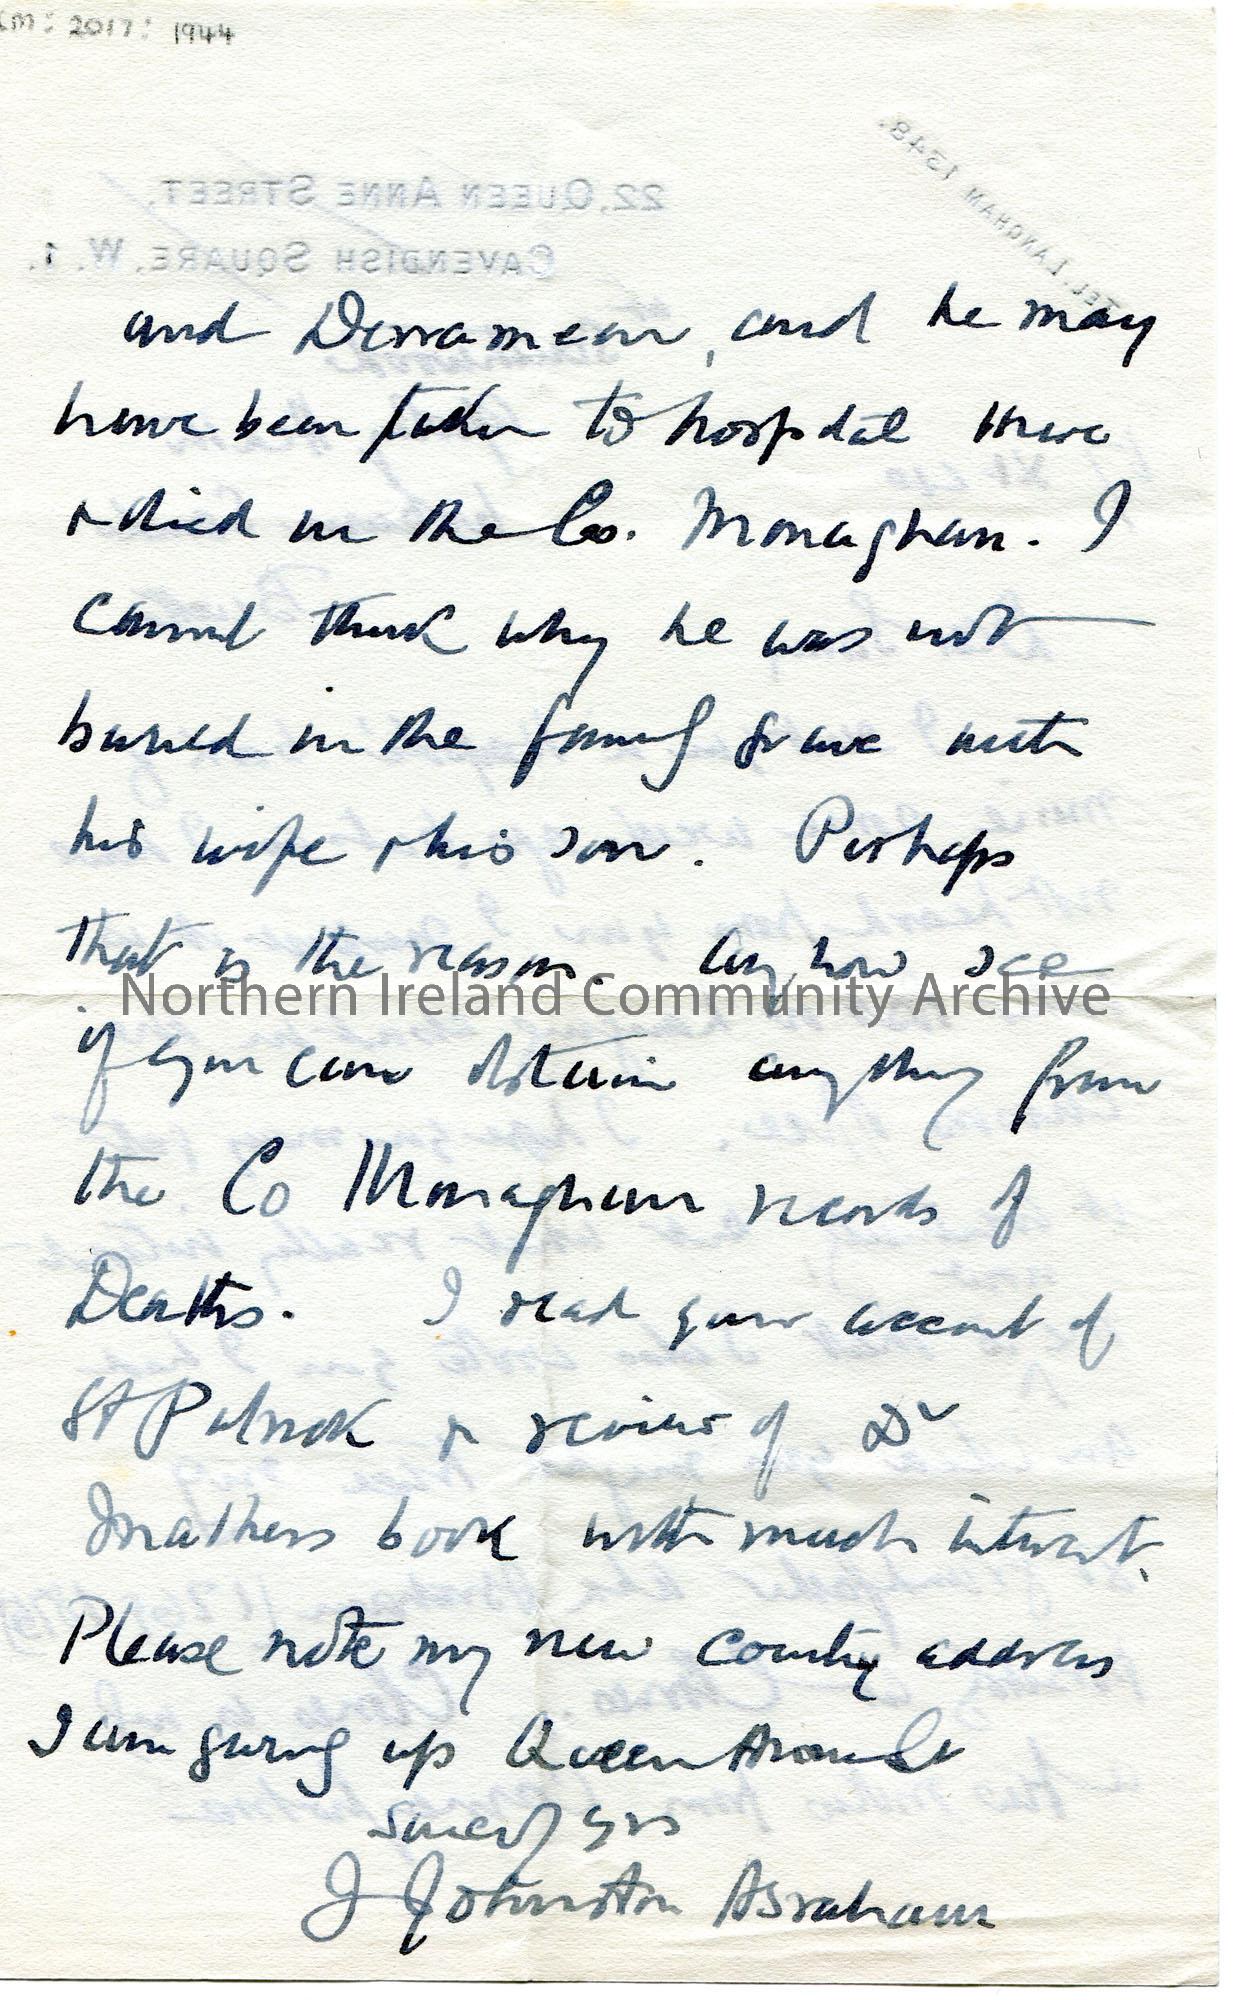 CM: 2017: 1944
TEL. LANGHAM 1548.
22, QUEEN ANNE STREET,
CAVENDISH SQUARE, W. 1.
and , and he may
have been taken to hospital there
& died in the Co. Monaghan. I
cannot think why he was not
buried in the family grave with
his wife & his son. Perhaps
that is the reason. Anyhow see
Northern Ireland Community Archive
if you can obtain anything from
the Co Monaghan records of
Deaths. I read your account of
St Patrick & review of Dr
book with much interest.
Please note my new country address
I am giving up Queen Anne St
yrs
J Johnston Abraham